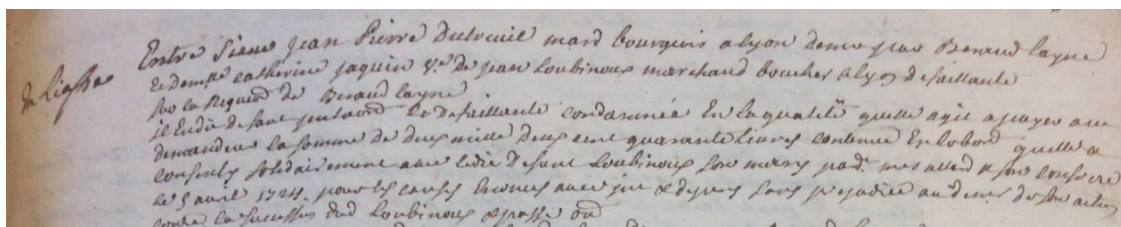 Entre Sieur Jean Pierre Dutreuil mard bourgeois a lyon demr par Benaud layné
de Liasse
Et demlle Catherine Jaquin ve de Jean Loubinoux marchand boucher a lyon defaillante
sur la Requeste de Benaud layné
il Est dit defaut La defaillante condamnée En la qualité quelle agit a payer au
demandeur la somme de deux mille deux cent quarante Livres contenue En lobon quelle a
consenty Solidairement avec ledit Defunt Loubinoux son mary pard. & son confrere
le 5 avril 1724 pour les causes avec & depens sans prejudice audt demr de son action
contre la succession dud Loubinoux & passé